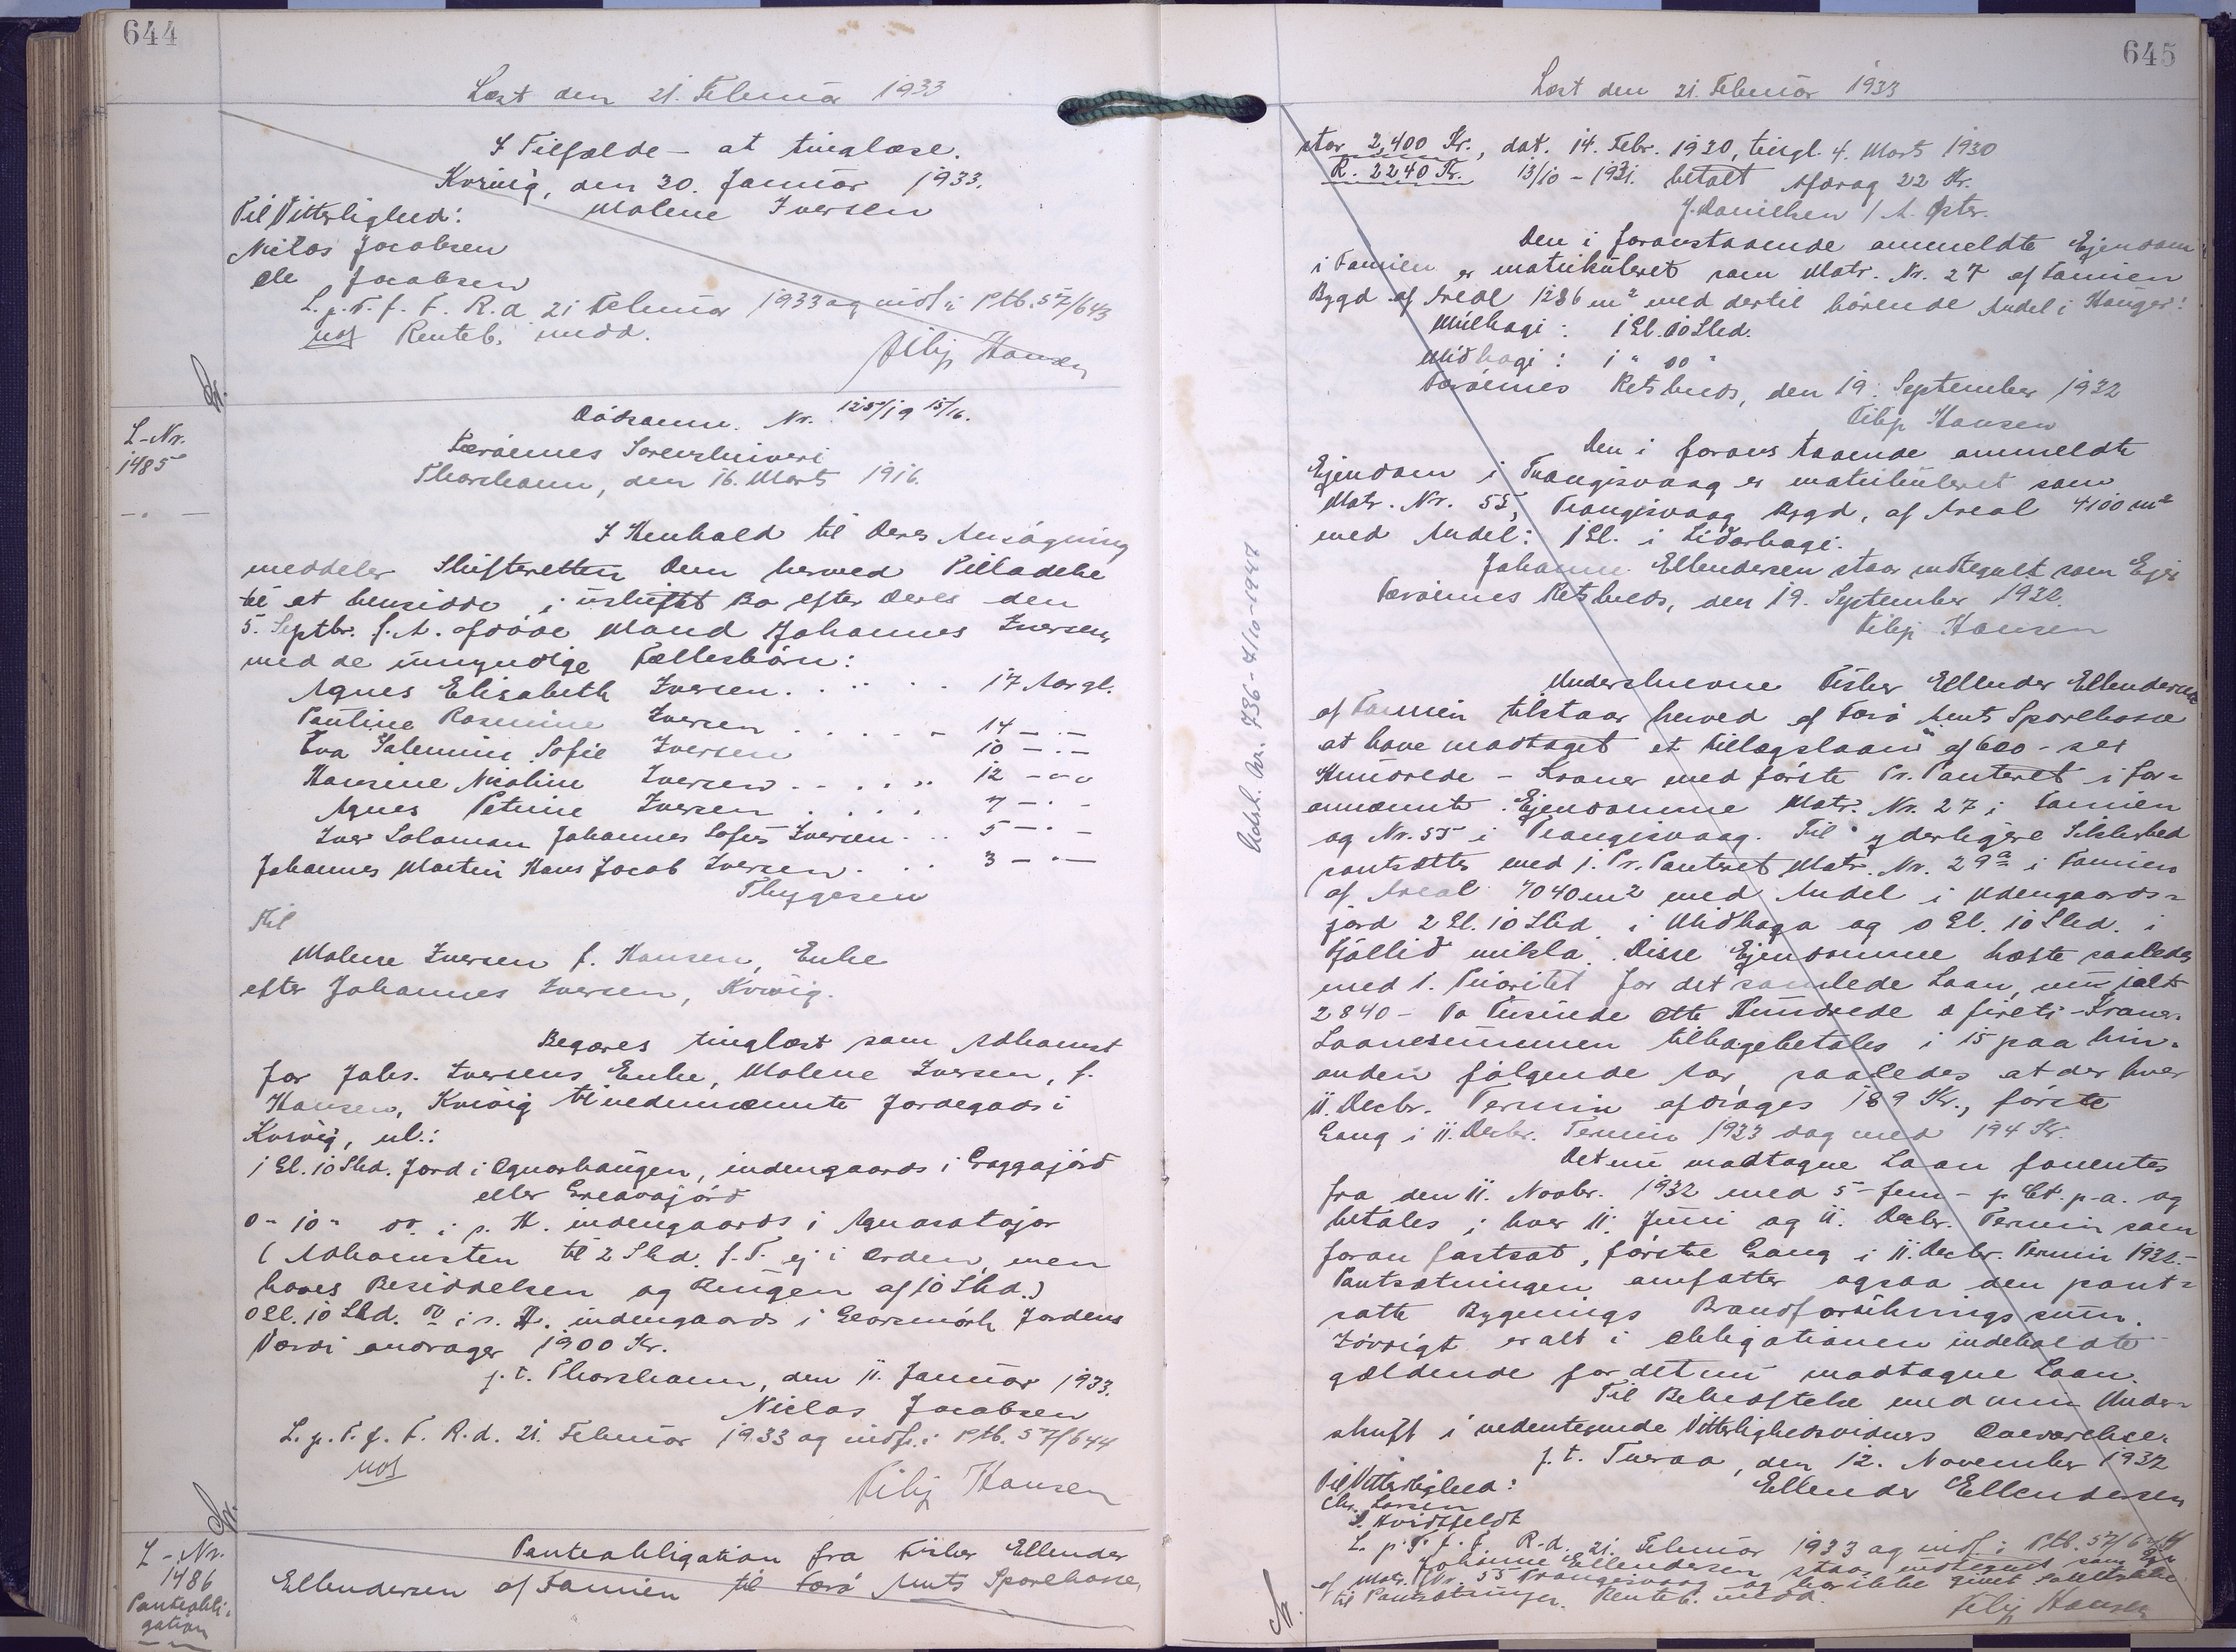 644
Læst den 21. Februar 1933
I Tilfælde – at tinglæse.
Kvivig, den 30. Januar 1933.
Til Vitterlighed: Malene Iversen
Niclas Jacobsen
Ole Jacobsen
L. p. T. f. F. R. d. 21 Februar 1933 og indf. i Ptb. 57/643
Renteb. medd.
Filip Hansen
L-Nr.
1485
Dödsanm. Nr. 125/19 15/16.
Færöernes Sorenskriveri
Thorshavn, den 16. Marts 1916.
I Henhold til Deres Ansögning
meddeler Skifteretten Dem herved Tilladelse
til at hensidde i uskiftet Bo efter Deres den
5. Septbr. f. A. afdöde Mand Johannes Iversen,
med de umyndige Fællesbörn:
Agnes Elisabeth Iversen . . . . 17 Aar gl.
Pauline Rasmine Iversen . . . . . 14 – . –
Eva Salemine Sofie Iversen 10 – . –
Hansine Nicoline Iversen . . . . 12 – „ –
Agnes Petrine Iversen . . . . 7 – . –
Iver Salomon Johannes Sofus Iversen . . 5 – . –
Johannes Martin Hans Jacob Iversen . . . 3 – . –
Thygesen
Til
Malene Iversen f. Hansen, Enke
efter Johannes Iversen, Kvivig.
Begæres tinglæst som Adkomst
for Johs. Iversens Enke, Malene Iversen, f.
Hansen, Kvivig til nedennævnte Jordegods i
Kvivig, nl.:
1 Gl. 10 Skd. Jord i Ognarhaugen, indengaards i Graggajörd
eller Greavajörd
0 „ 10 „ do. i s. H. indengaards i
(Adkomsten til 2 Skd. f. T. ej i Orden, men
haves Besiddelsen og Brugen af 10 Skd.)
0 Gl. 10 Skd. do i s. H. indengaards i Jordens
Værdi andrager 1900 Kr.
p. t. Thorshavn, den 11. Januar 1933.
Niclas Jacobsen
L. p. T. f. F. R. d. 21. Februar 1933 og indf. i Ptb. 57/644
Filip Hansen
L-Nr.
1486
Panteobli-
gation
Panteobligation fra Fisker Ellendur
Ellendersen af Famien til Færö Amts Sparekasse,
645
Læst den 21. Februar 1933
stor 2,400 Kr., dat. 14. Febr. 1930, tingl. 4. Marts 1930
R. 2240 Kr. 13/10 – 1931. betalt Afdrag 22 Kr.
J. Danielsen / A. Öster.
Den i foranstaaende anmeldte Ejendom
i Famien er matrikuleret som Matr. Nr. 27 af Famien
Bygd af Areal 1286 m² med dertil hörende Andel i Hauger:
Múlhagi: 1 Gl. 00 Skd.
Miðhagi: 1 „ 00 „
Færöernes Retskreds, den 19. September 1932
Filip Hansen
Den i foranstaaende anmeldte
Ejendom i Trangisvaag er matrikuleret som
Matr. Nr. 55, Trangisvaag Bygd, af Areal 4100 m²
med Andel: 1 Gl. i Liðarhagi.
Johanne Ellendersen staar indtegnet som Ejer
Færöernes Retskreds, den 19. September 1932.
Filip Hansen
Adsk. Nr. 736 – 7/10 – 1947
Underskrevne Fisker Ellendur Ellendersen
af Famien tilstaar herved af Færö Amts Sparekasse
at have modtaget et Tillægslaan af 600 – seks
Hundrede – Kroner med förste Pr. Panteret i for-
annævnte Ejendomme Matr. Nr. 27 i Famien
og Nr. 55 i Trangisvaag. Til yderligere Sikkerhed
pantsættes med 1. Pr. Panteret Matr. Nr. 29a i Famien
af Areal 7040 m² med Andel i Udengaards-
jord 2 Gl. 10 Skd. i Miðhaga og 0 Gl. 10 Skd. i
Fjallið mikla. Disse Ejendomme hæfte saaledes
med 1. Prioritet for det samlede Laan, nu ialt
2840 – To Tusinde Otte Hundrede & fireti – Kroner.
Laanesummen tilbagebetales i 15 paa hin-
anden fölgende Aar, saaledes at der hver
11. Decbr. Termin afdrages 189 Kr., förste
Gang i 11. Decbr. Termin 1933 dog med 194 Kr.
Det nu modtagne Laan forrentes
fra den 11. Novbr. 1932 med 5 – fem – p. Ct. p. a. og
betales i hver 11. Juni og 11. Decbr. Termin som
foran fastsat, förste Gang i 11. Decbr. Termin 1932. –
Pantsætningen omfatter ogsaa den pant-
satte Bygnings Brandforsikringssum.
Iövrigt er alt i Obligationen indeholdte
gældende for det nu modtagne Laan.
Til Bekræftelse med min Under-
skrift i nedentegnede Vitterlighedsvidners Overværelse.
p. t. Tveraa, den 12. November 1932
Til Vitterlighed: Ellendur Ellendersen
Chr. Larsen
Hvidtfeldt
L. p. T. f. F. R. d. 21. Februar 1933 og indf. i Ptb. 57/644
Johanne Ellendersen staar indtegnet som Ejer
af Matr. Nr. 55 Trangisvaag og har ikke givet Samtykke
til Pantsætningen. Renteb. medd.
Filip Hansen